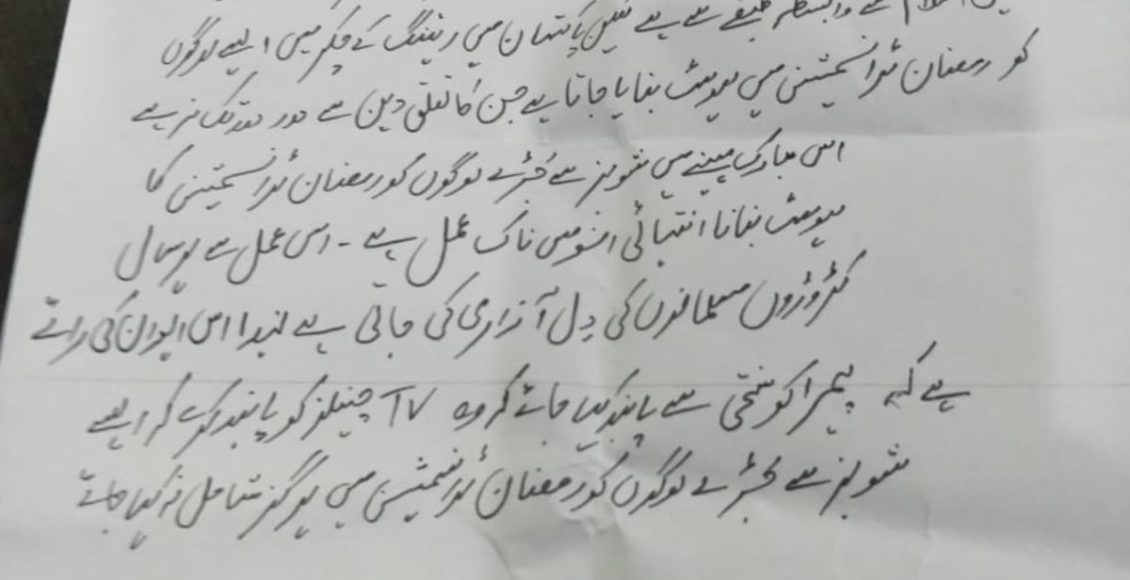 اسلام سے وابستہ طبقے سے ہے لیکن پاکستان میں ریٹنگ کے چکر میں ایسے لوگوں
کو رمضان ٹرانسمیشن میں ہوسٹ بنایا جاتا ہے جن کا تعلق دین سے دور دور تک نہ ہے
اس مبارک مہینے میں شوبز سے جُڑے لوگوں کو رمضان ٹرانسمیشن کا
ہوسٹ بنانا انتہائی افسوس ناک عمل ہے ۔ اس عمل سے ہر سال
کڑوڑوں مسلمانوں کی دل آزاری کی جاتی ہے لہذا اس ایوان کی رائے
ہے کہ پیمرا کو سختی سے پابند کیا جائے کہ وہ TV چینلز کو پابند کرے کہ ایسے
شوبز سے جُڑے لوگوں کو رمضان ٹرانسمیشن میں ہرگز شامل نہ کیا جائے